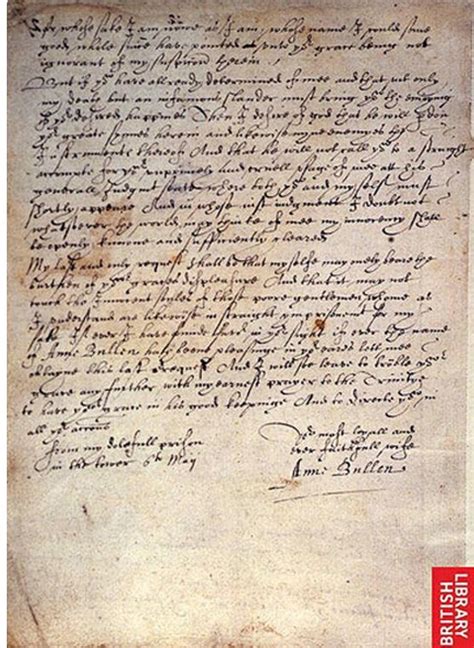 for, whose sake I am now as I am, whose name I could some
good, while since have pointed unto yr grace being not
ignorant of my suspicion therein.
But if ye have allready determined of mee and that not only
my deathe but an infamous slander must bring ye the enioying
of yr desired happines Then I desire of god that he will pardon
yr greate synnes herein and likewise myne enemyes the
Instruments thereof And that he will not call ye to a straight
accompte for yr unprincely and cruell usage of mee att his
generall Judgmt seate where both ye and my self must
shortly appeare And in whose just judgment I doubt not
whatsoever the world may thinke of mee my innocency shall
be openly knowne and sufficiently cleared
My last and only request shall be that my selfe may onely beare the
burthen of yr graces displeasure And that it may not
touch the Innocent soules of those poore gentlemen whome as
I understand are likewise in straight imprisonment for my
sake If ever I have found favor in yr sight if ever the name
of Anne Bullen hath beene pleasinge in yr eares lett mee
obtayne this last request And I will so leave to troble yor
grace any further with my earnest prayer to the Trinitye
to have yr grace in his good keepinge And to directe ye in
all yr actions
From my dolefull prison
in the tower 6th May
Yr most loyall and
ever faithfull wife
Anne Bullen
BRITISH
LIBRARY